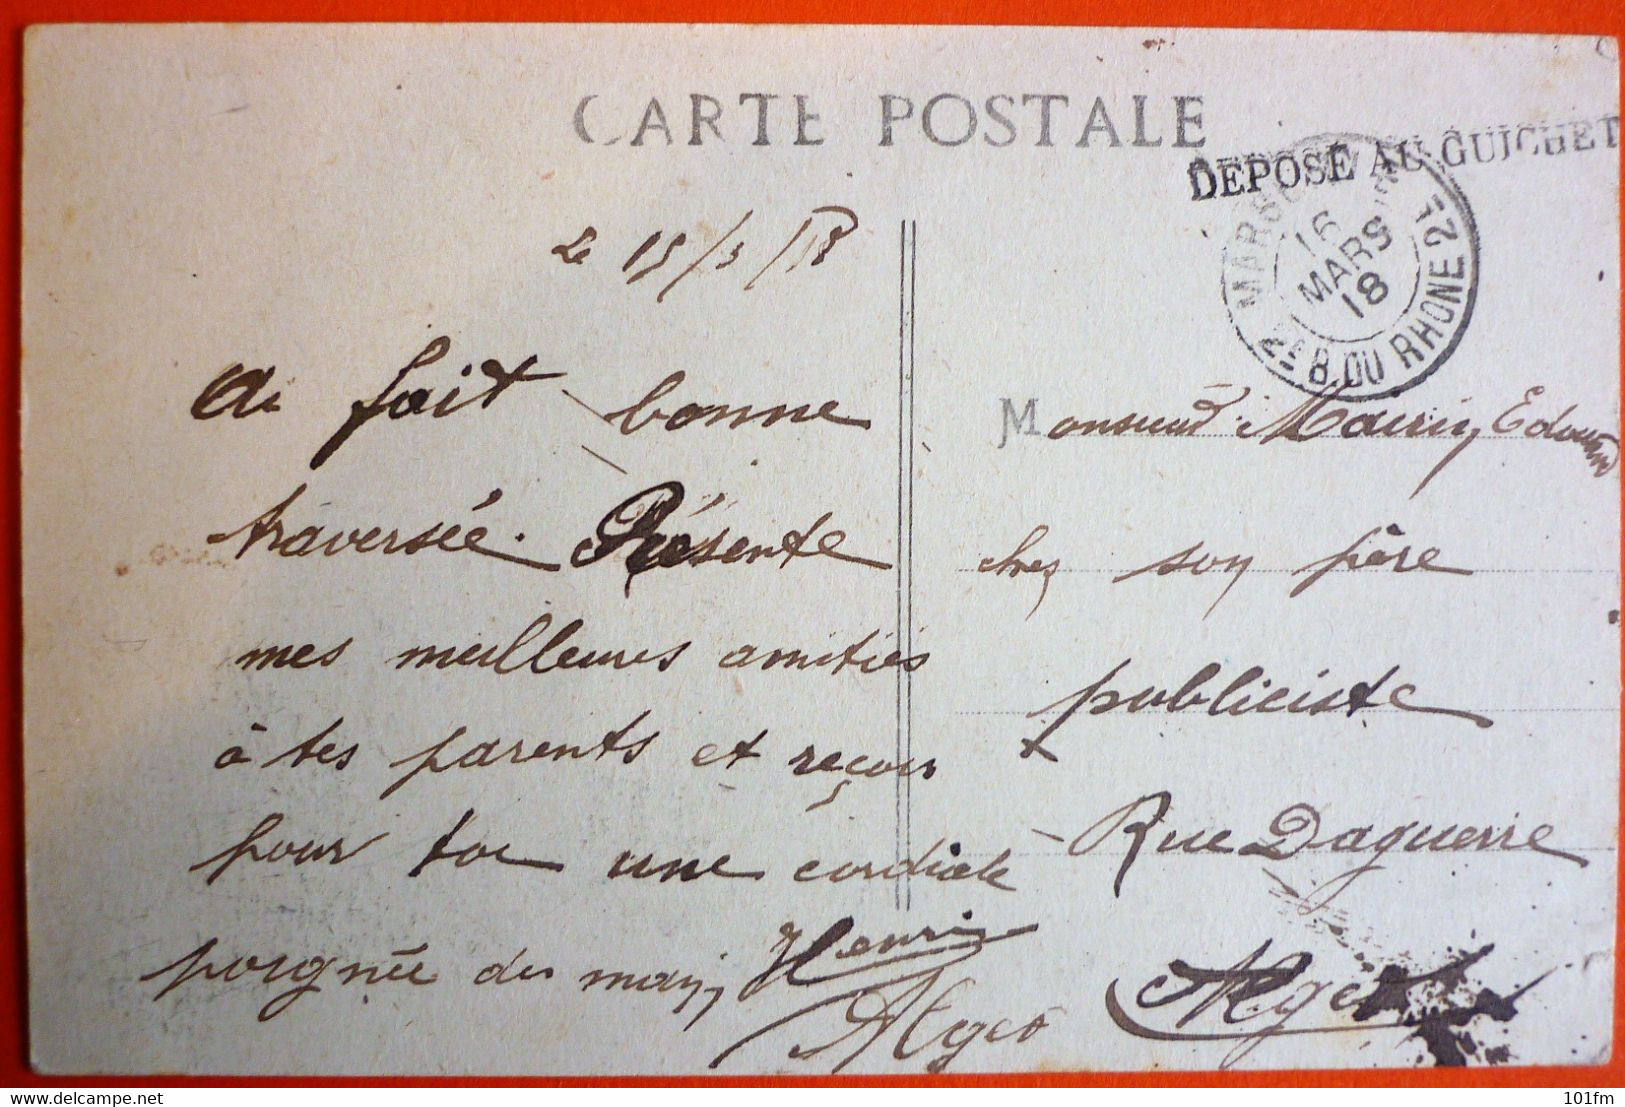 CARTE POSTALE
DEPOSÉ AU GUICHET
16
MARS
18
B. DU RHONE
Le 15/3/18
Ai fait bonne
traversée. Présente
mes meilleures amitiés
à tes parents et reçois
pour toi une cordiale
poignée de main
Henri
Alger
Monsieur Edouard
chez son père
publiciste
Rue Daguerre
Alger
101fm